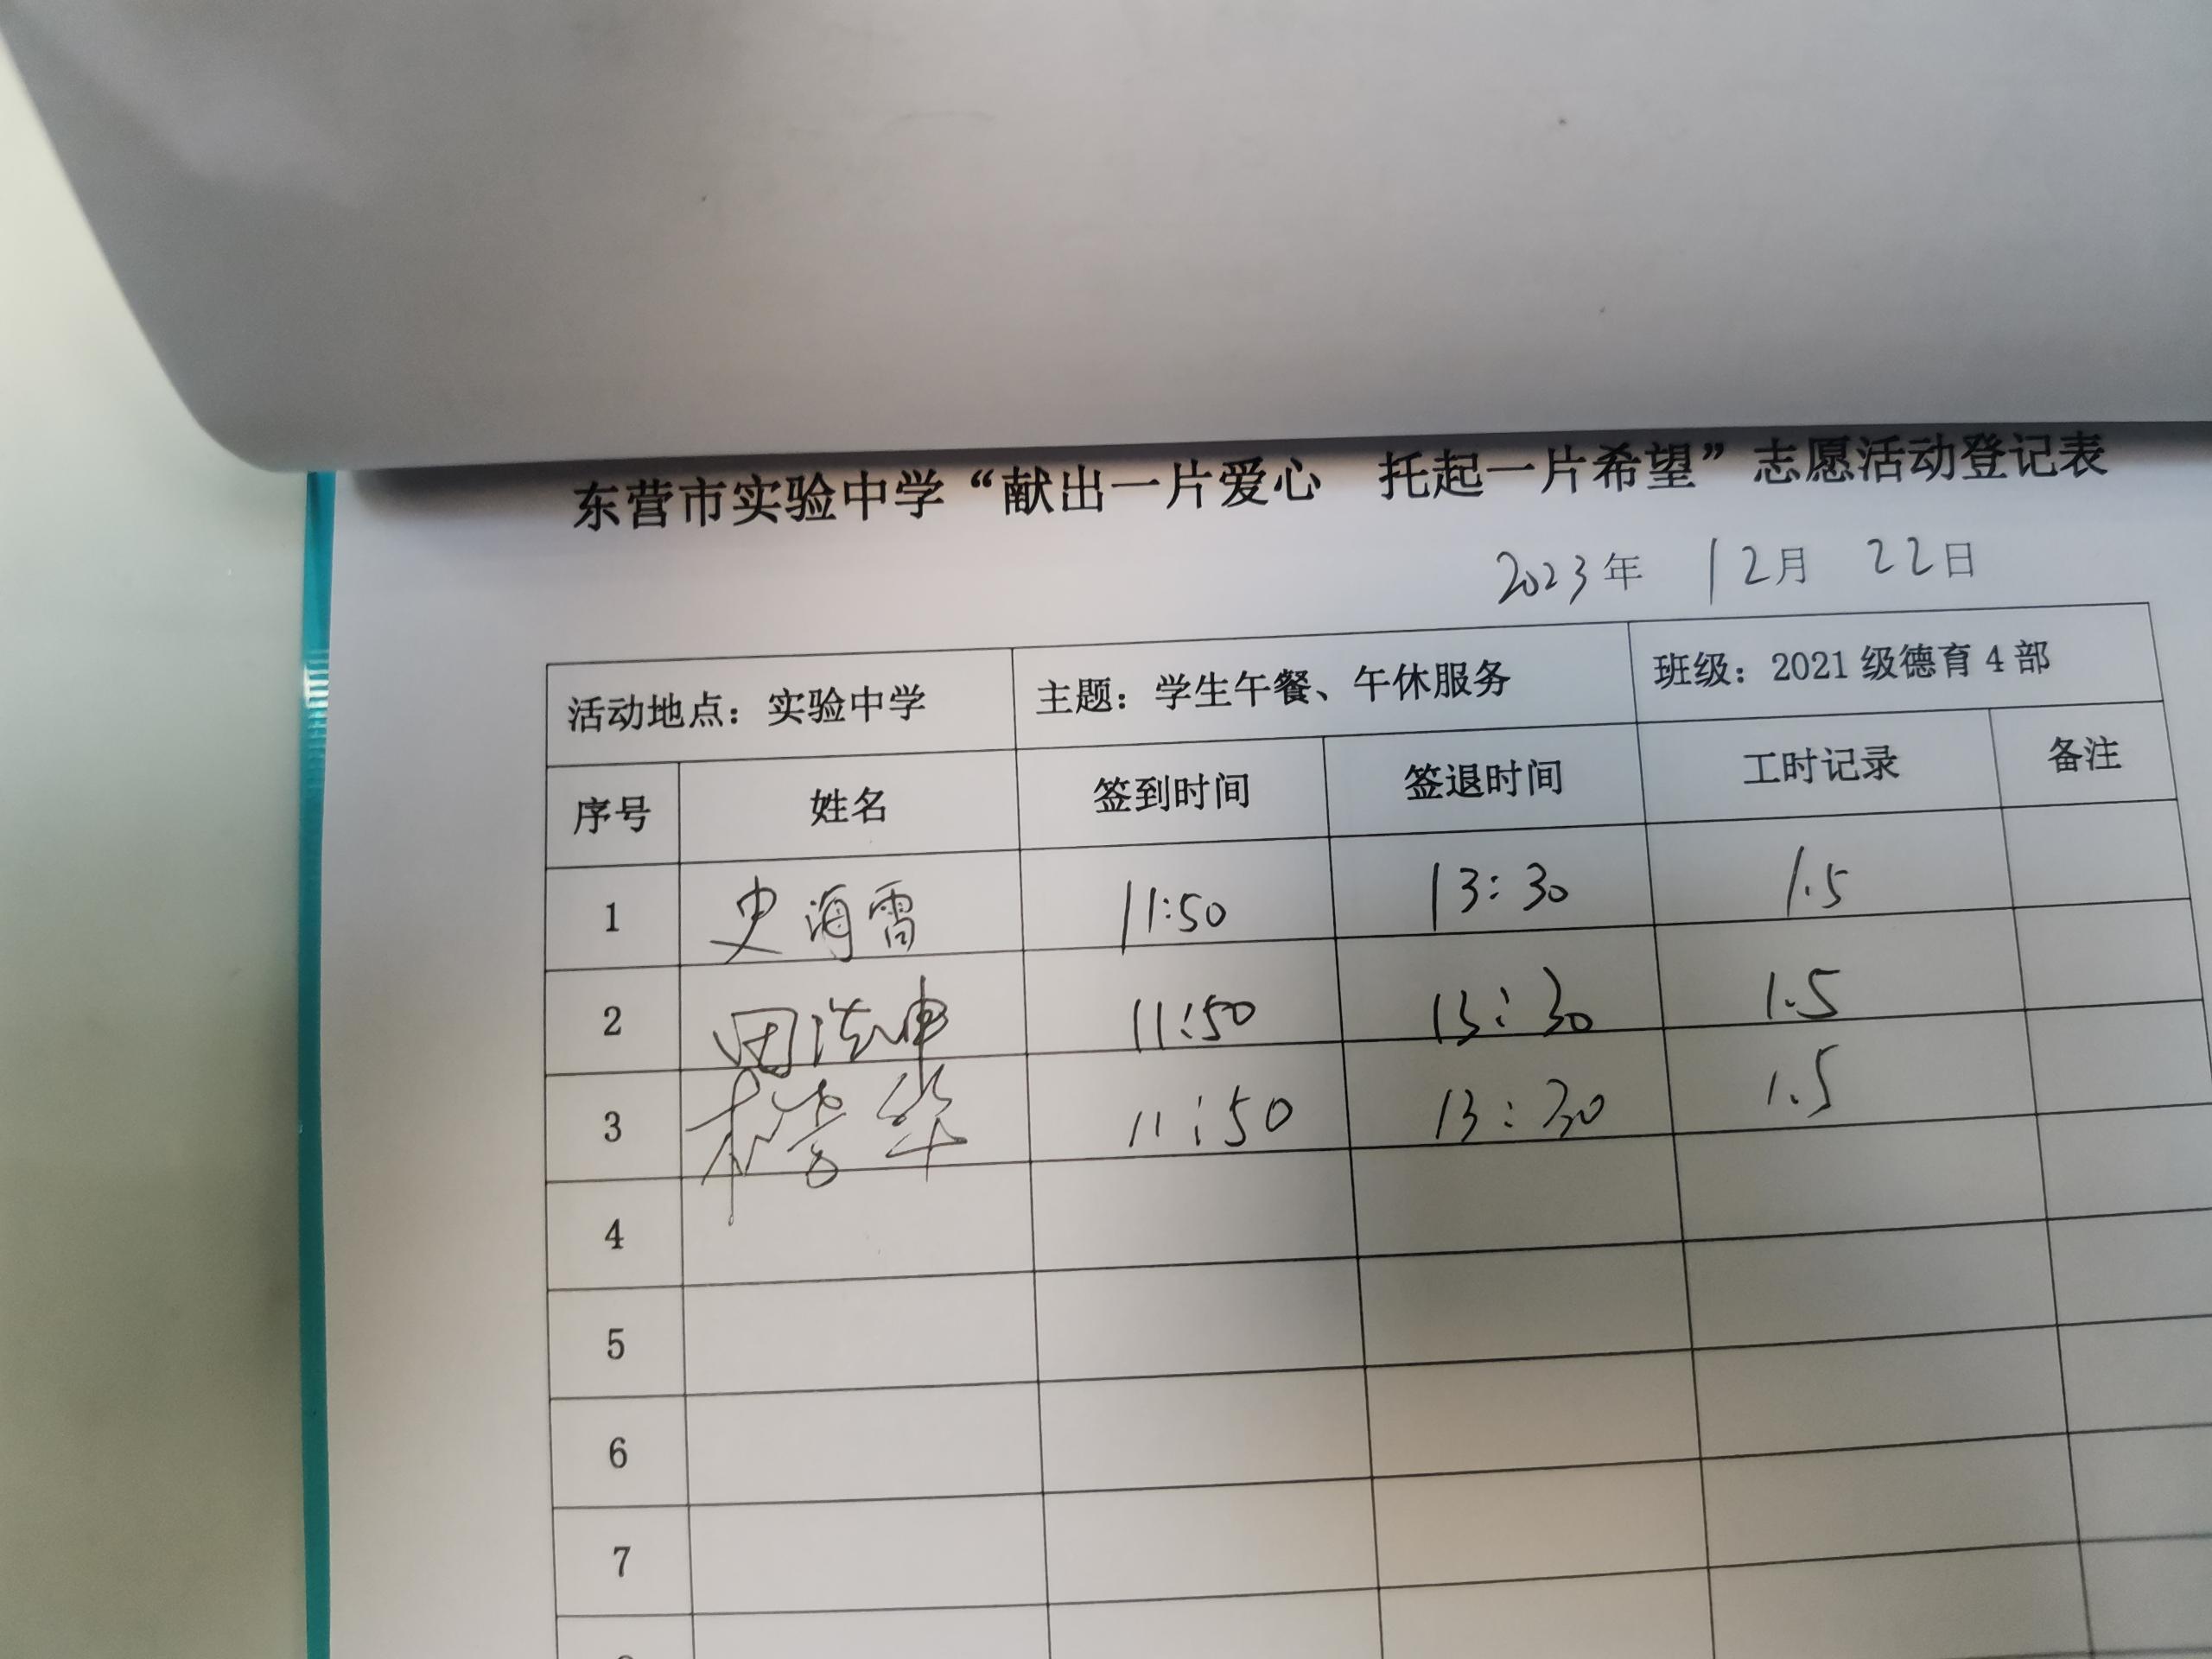 东营市实验中学“献出一片爱心 托起一片希望”志愿活动登记表
2023年 12月 22日
活动地点：实验中学 主题：学生午餐、午休服务 班级：2021级德育4部
序号 姓名 签到时间 签退时间 工时记录 备注
1 史海霄 11:50 13:30 1.5
2 11:50 13:30 1.5
3 11:50 13:30 1.5
4
5
6
7